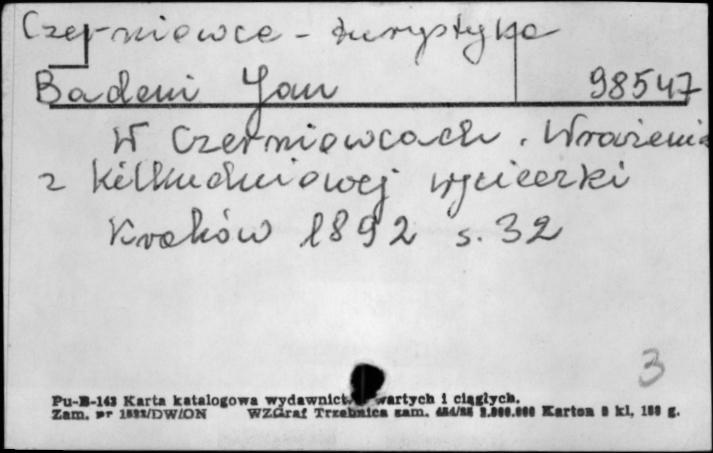 Czerniowce - turystyka
Badeni Jan 98547
W Czerniowcach. Wrażenia
z kilkudniowej wycieczki
Kraków 1892 s. 32
3
Pu-B-143 Karta katalogowa wydawnict wartych i ciągłych.
Zam. nr 1593/DW/ON WZGraf Trzebnica zam. Karton kl, g.